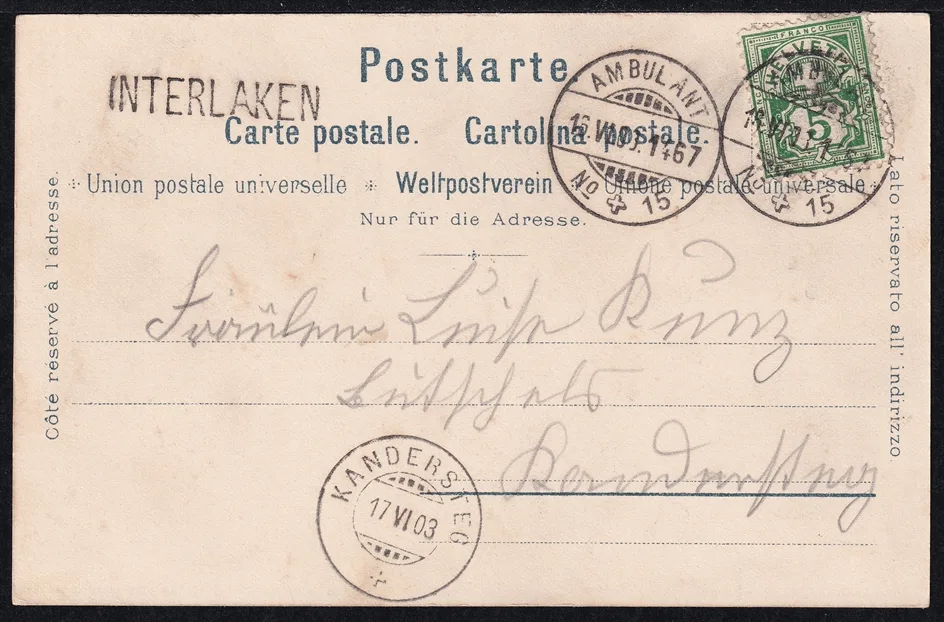 Postkarte
INTERLAKEN
Carte postale. Cartolina postale.
Union postale universelle * Weltpostverein * Unione postale universale
Nur für die Adresse.
Côté réservé à l'adresse.
Lato riservato all' indirizzo.
AMBULANT
16.VI.03.1467
No 15
FRANCO
HELVETIA
5
No 15
Fräulein Luise Kunz
Bütschels
Kandersteg
KANDERSTEG
17 VI 03